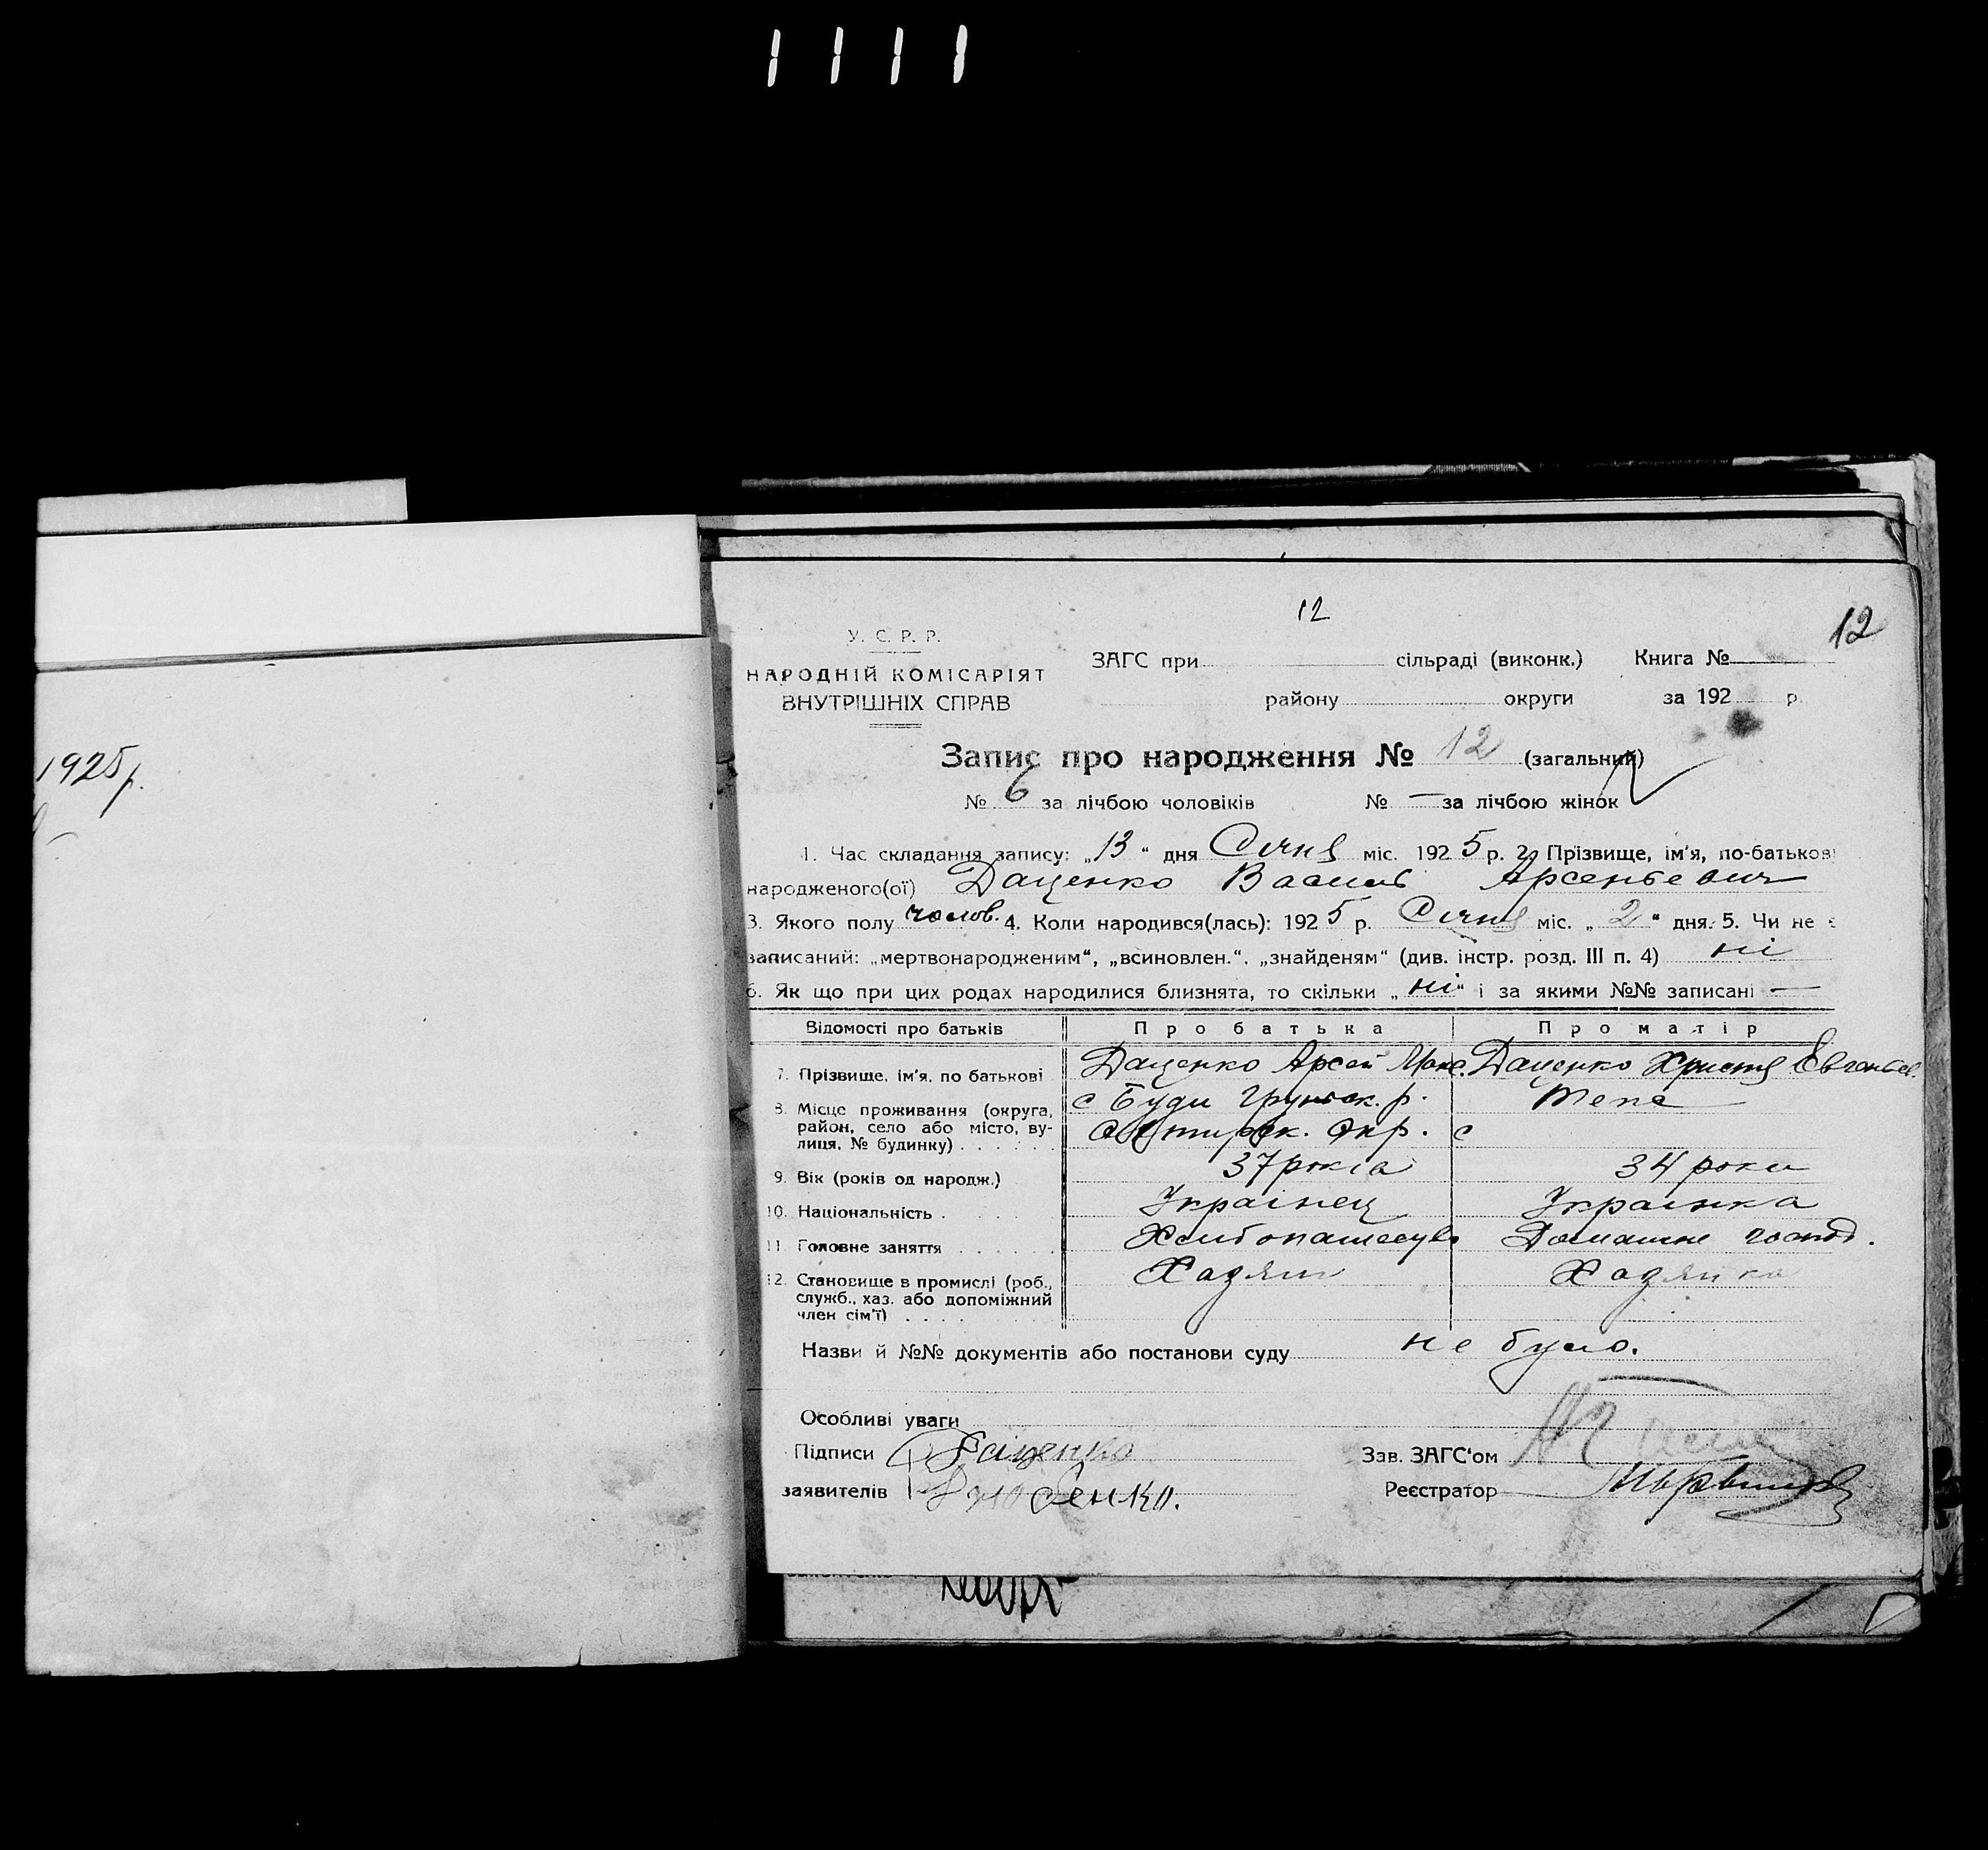 1111
1925 р.
12
12
У. С. Р. Р.
НАРОДНІЙ КОМІСАРІЯТ
ВНУТРІШНІХ СПРАВ
ЗАГС при сільраді (виконк.) Книга №
району округи за 192 р.
Запис про народження № 12 (загальний)
№ 6 за лічбою чоловіків № — за лічбою жінок
1. Час складання запису: „13“ дня Січня міс. 1925 р. 2. Прізвище, ім'я, по-батькові
народженого(ої) Даценко Василь Арсеньевич
3. Якого полу чолов. 4. Коли народився(лась): 1925 р. Січня міс. „2“ дня. 5. Чи не є
записаний: „мертвонародженим“, „всиновлен.“, „знайденям“ (див. інстр. розд. III п. 4) ні
6. Як що при цих родах народилися близнята, то скільки „ні“ і за якими №№ записані —
Відомості про батьків Про батька Про матір
7. Прізвище, ім'я, по батькові Даценко Арсей Даценко Христя Евгеньев.
8. Місце проживання (округа, район, село або місто, вулиця, № будинку) с Буди Грунськ. р. Теке
Окр.
9. Вік (років од народж.) 37 років 34 роки
10. Національність Украінец Украінка
11. Головне заняття Домашне господ.
12. Становище в промислі (роб., служб., хаз. або допоміжний член сім'ї) Хазяін Хазяйка
Назви й №№ документів або постанови суду не було.
Особливі уваги
Підписи Даценко Зав. ЗАГС'ом
заявителів Реєстратор